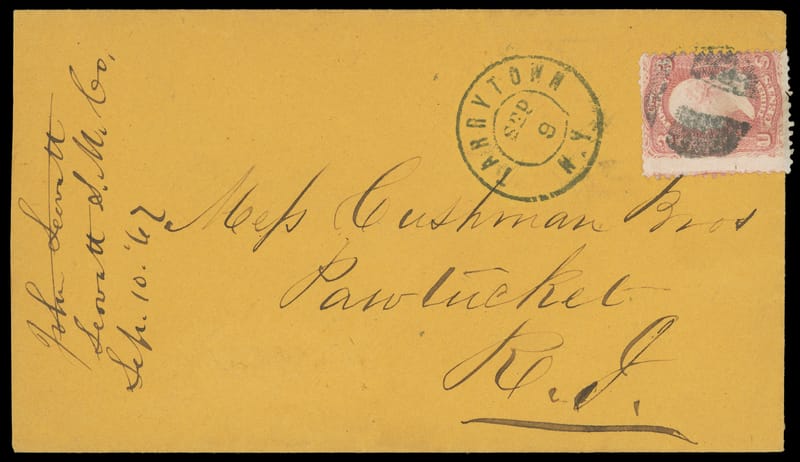 TARRYTOWN N.Y.
SEP
9
Mess Cushman Bros
Pawtucket
R.I.
John
S. M. Co,
Sep. 10. '67